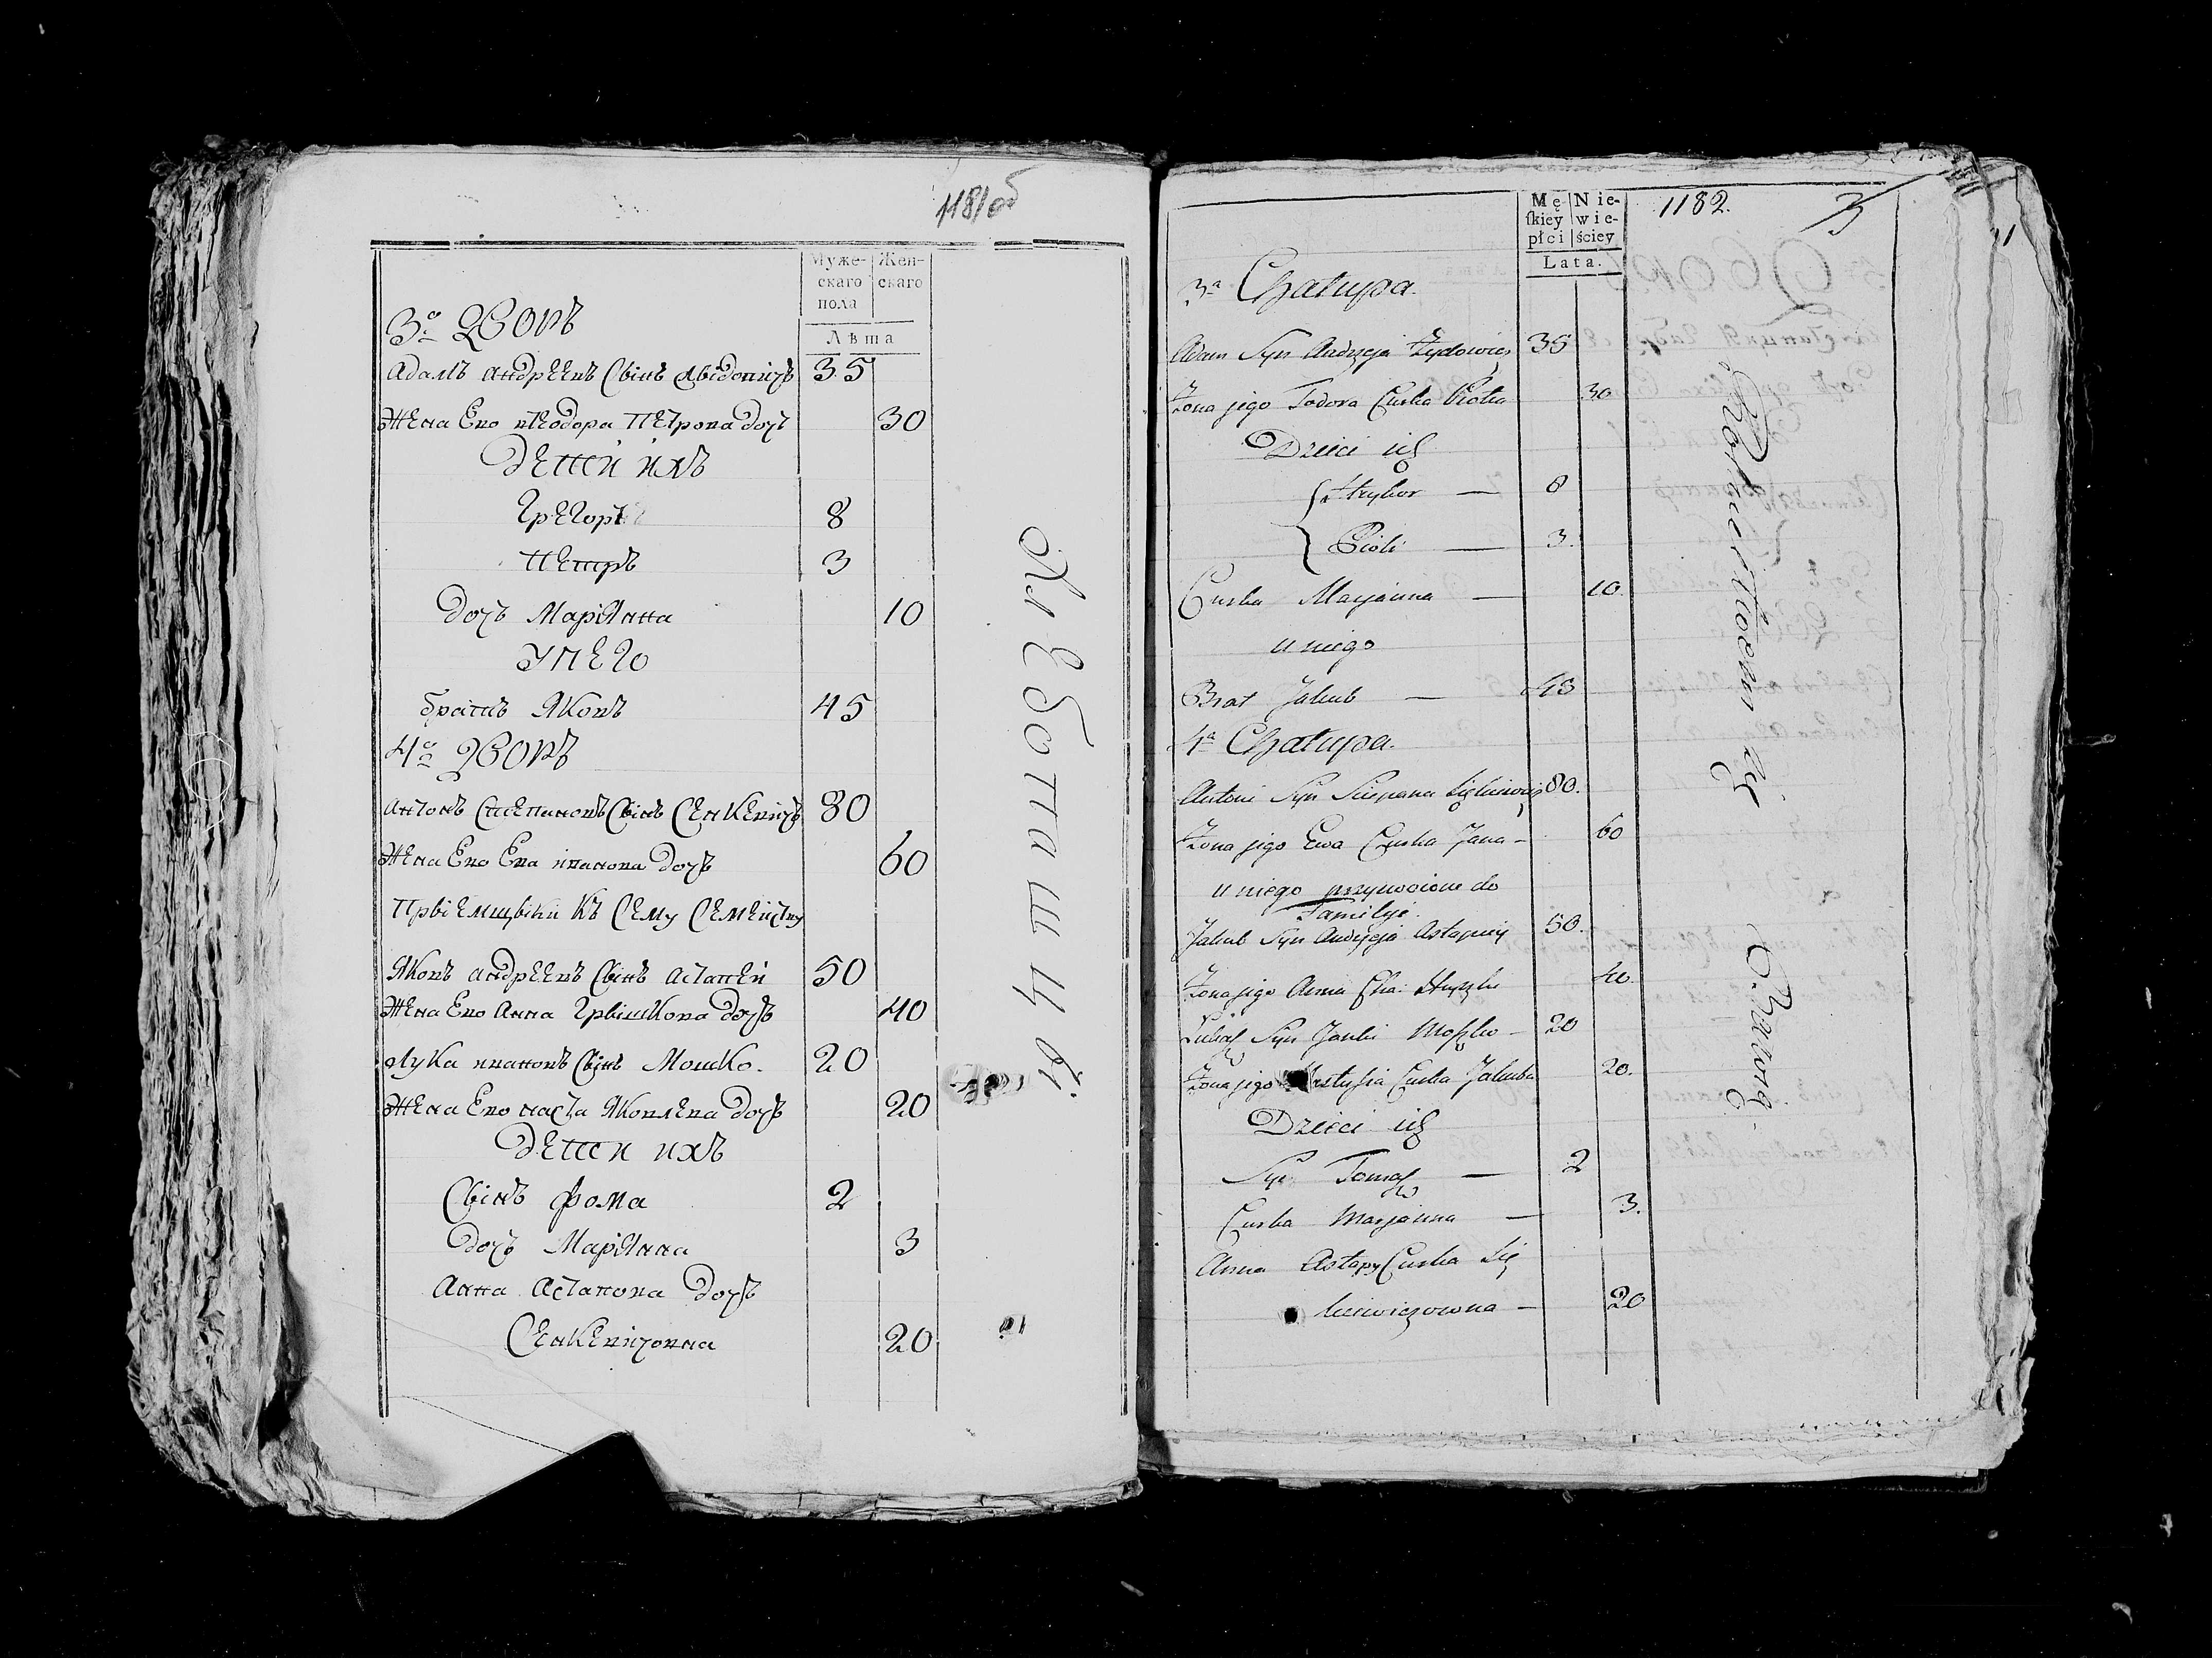 1181об
Муже-
скаго
пола
Жен-
скаго
Лѣта
3й Дворъ
Адамъ Андреевъ Свінъ 35
Жена Ево Теодора Петрова дочъ 30
Детей ихъ
Грегоръ 8
Петръ 3
Дочъ Маріянна 10
У него
братъ Яковъ 45
4й Дворъ
Антонъ Степановъ Свінъ Сенкевичъ 80
Жена Ево Ева иванова дочъ 60
Прві емщвікй къ Сему Семейству
Яковъ Андреевъ Свінъ Астапей 50
Жена Ево Анна Грвішкова дочъ 40
Лука ивановъ Свінъ Мошко. 20
Жена Ево наста Яковлева дочъ 20
Детей ихъ
Свінъ Фома 2
Дочъ Маріянна 3
Анна Астапова дочъ
Сенкевичовна 20
хлѣбопашцы
Mę-
ſkiey
płci
Nie-
wie-
ściey
Lata.
1182.
3a Chałupa.
Adam Syn Andrzeja Żydowicz 35
Żona jego Todora Curka Piotra 30
Dzieci ich
Hryhor — 8
Piotr — 3.
Curka Marjanna — 10.
u niego
Brat Jakub — 45
4a Chałupa.
Antoni Syn Sciepana Siękiewicz 80.
Żona jego Ewa Curka Jana – 60
u niego przymocione do
Familyi.
Jakub Syn Andrzeja Astapiey 50.
Żona jego Anna Cka. Hryszki 40.
Łukasz Syn Janki Moszko – 20
Żona jego Nastusia Curka Jakuba 20.
Dzieci ich
Syn Tomasz — 2
Curka Marjanna — 3.
Anna Astapy Curka Się
kiewiczowna – 20
Rolnictwem się
Bawią.